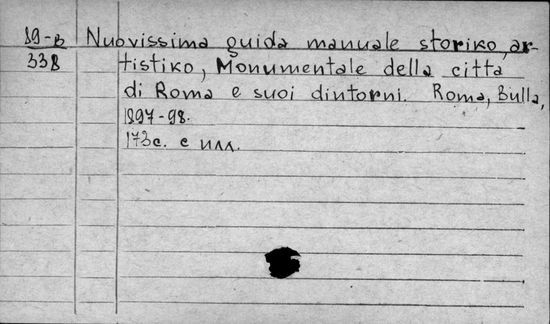 19-B Nuovissima guida manuale storiko, ar-
338 tistiko, Monumentale della città
di Roma e suoi dintorni. Roma, Bulla,
1897-98.
173c. с илл.